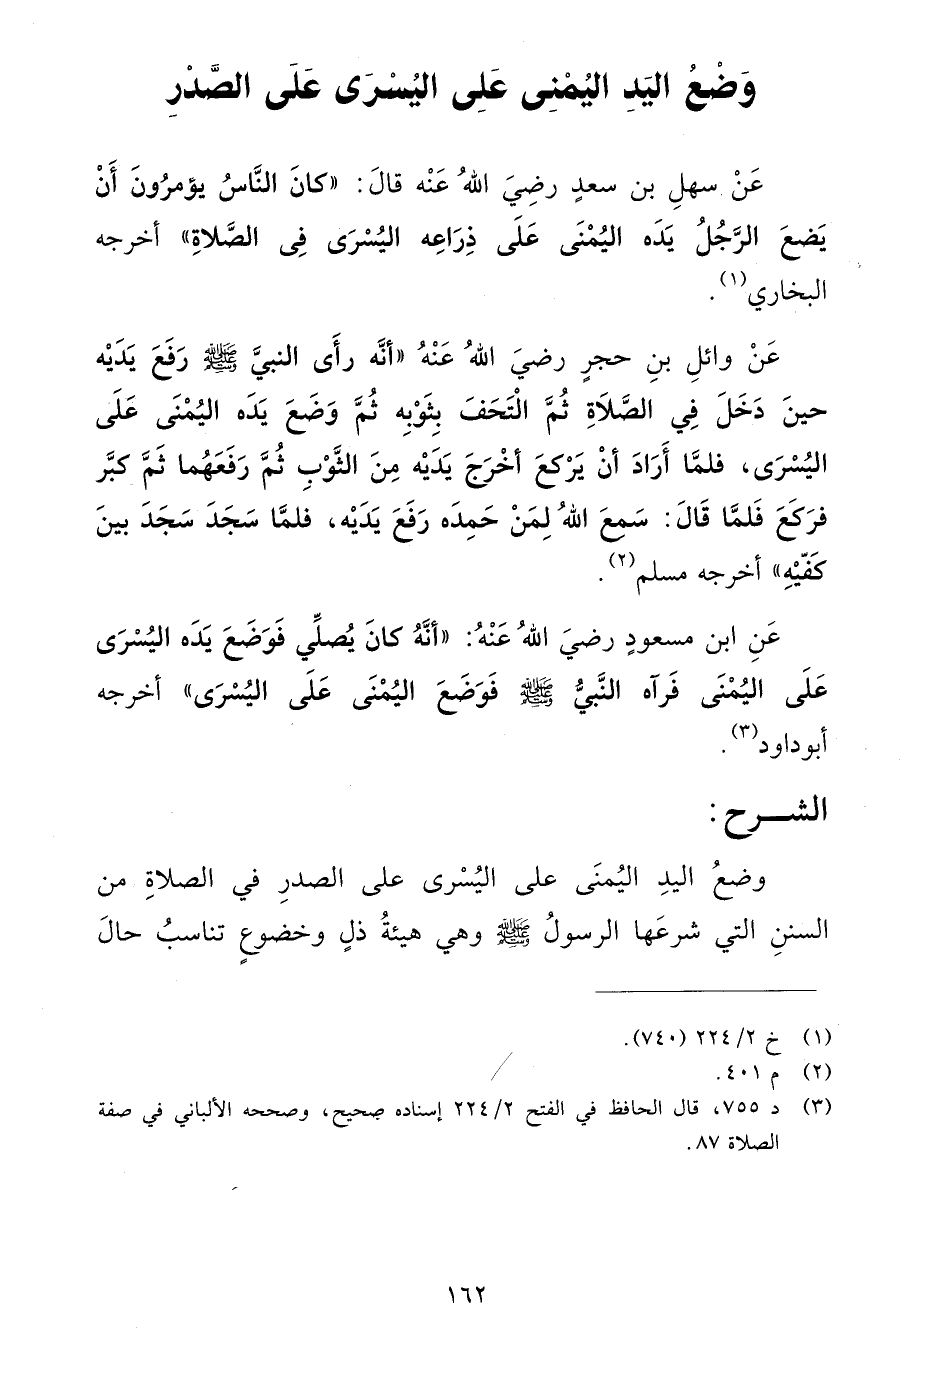 وَضْعُ اليَدِ اليُمْنِى عَلِى اليُسْرَى عَلَى الصَّدْرِ
عَنْ سهلِ بن سعدٍ رضِيَ اللهُ عَنْه قالَ: «كانَ النَّاسُ يؤمرُونَ أَنْ
يَضعَ الرَّجُلُ يَدَه اليُمْنَى عَلَى ذِرَاعِه اليُسْرَى فِى الصَّلاةِ» أخرجه
البخاري(١).
عَنْ وائلِ بنِ حجرٍ رضيَ اللهُ عَنْهُ «أنَّه رأَى النبيَّ ﷺ رَفَعَ يَدَيْه
حينَ دَخَلَ فِي الصَّلَاةِ ثُمَّ الْتَحَفَ بِثَوْبِه ثُمَّ وَضَعَ يَدَه اليُمْنَى عَلَى
اليُسْرَى، فلمَّا أَرَادَ أنْ يَرْكعَ أخْرَجَ يَدَيْه مِنَ الثَّوْبِ ثُمَّ رَفَعَهُما ثَمَّ كبَّر
فرَكَعَ فَلمَّا قَالَ: سَمِعَ اللهُ لِمَنْ حَمِدَه رَفَعَ يَدَيْه، فلمَّا سَجَدَ سَجَدَ بينَ
كَفَّيْهِ» أخرجه مسلم(٢).
عَنِ ابن مسعودٍ رضيَ اللهُ عَنْهُ: «أنَّهُ كانَ يُصلِّي فَوَضَعَ يَدَه اليُسْرَى
عَلَى اليُمْنَى فَرآه النَّبيُّ ﷺ فَوَضَعَ اليُمْنَى عَلَى اليُسْرَى» أخرجه
أبوداود(٣).
الشـــرح:
وضعُ اليدِ اليُمنَى على اليُسْرى على الصدرِ في الصلاةِ من
السننِ التي شرعَها الرسولُ ﷺ وهي هيئةُ ذلٍ وخضوعٍ تناسبُ حالَ
(١) خ ٢/ ٢٢٤ (٧٤٠).
(٢) م ٤٠١.
(٣) د ٧٥٥، قال الحافظ في الفتح ٢/ ٢٢٤ إسناده صحيح، وصححه الألباني في صفة
الصلاة ٨٧.
١٦٢